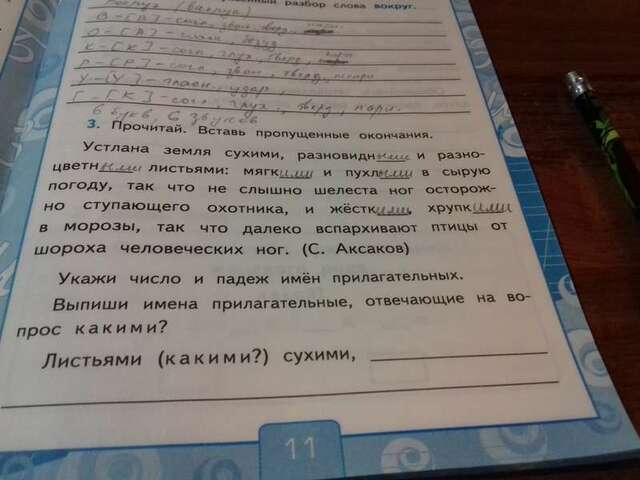 разбор слова вокруг.
В - [В] - согл., звон., твёрд., парн.
О - [А] - гласн., безуд.
К - [К] - согл., глух., твёрд., парн.
Р - [Р] - согл., звон., твёрд., непарн.
У - [У] - гласн., удар.,
Г - [К] - согл., глух., твёрд., парн.
6 букв, 6 звуков
3. Прочитай. Вставь пропущенные окончания.
Устлана земля сухими, разновидными и разно-
цветными листьями: мягкими и пухлыми в сырую
погоду, так что не слышно шелеста ног осторож-
но ступающего охотника, и жёсткими, хрупкими
в морозы, так что далеко вспархивают птицы от
шороха человеческих ног. (С. Аксаков)
Укажи число и падеж имён прилагательных.
Выпиши имена прилагательные, отвечающие на во-
прос какими?
Листьями (какими?) сухими,
11